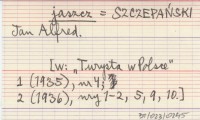 jaszcz = SZCZEPAŃSKI
Jan Alfred.
[w: „Turysta w Polsce"
1 (1935), nr 4;
2 (1936), nry 1-2, 5, 9, 10.]